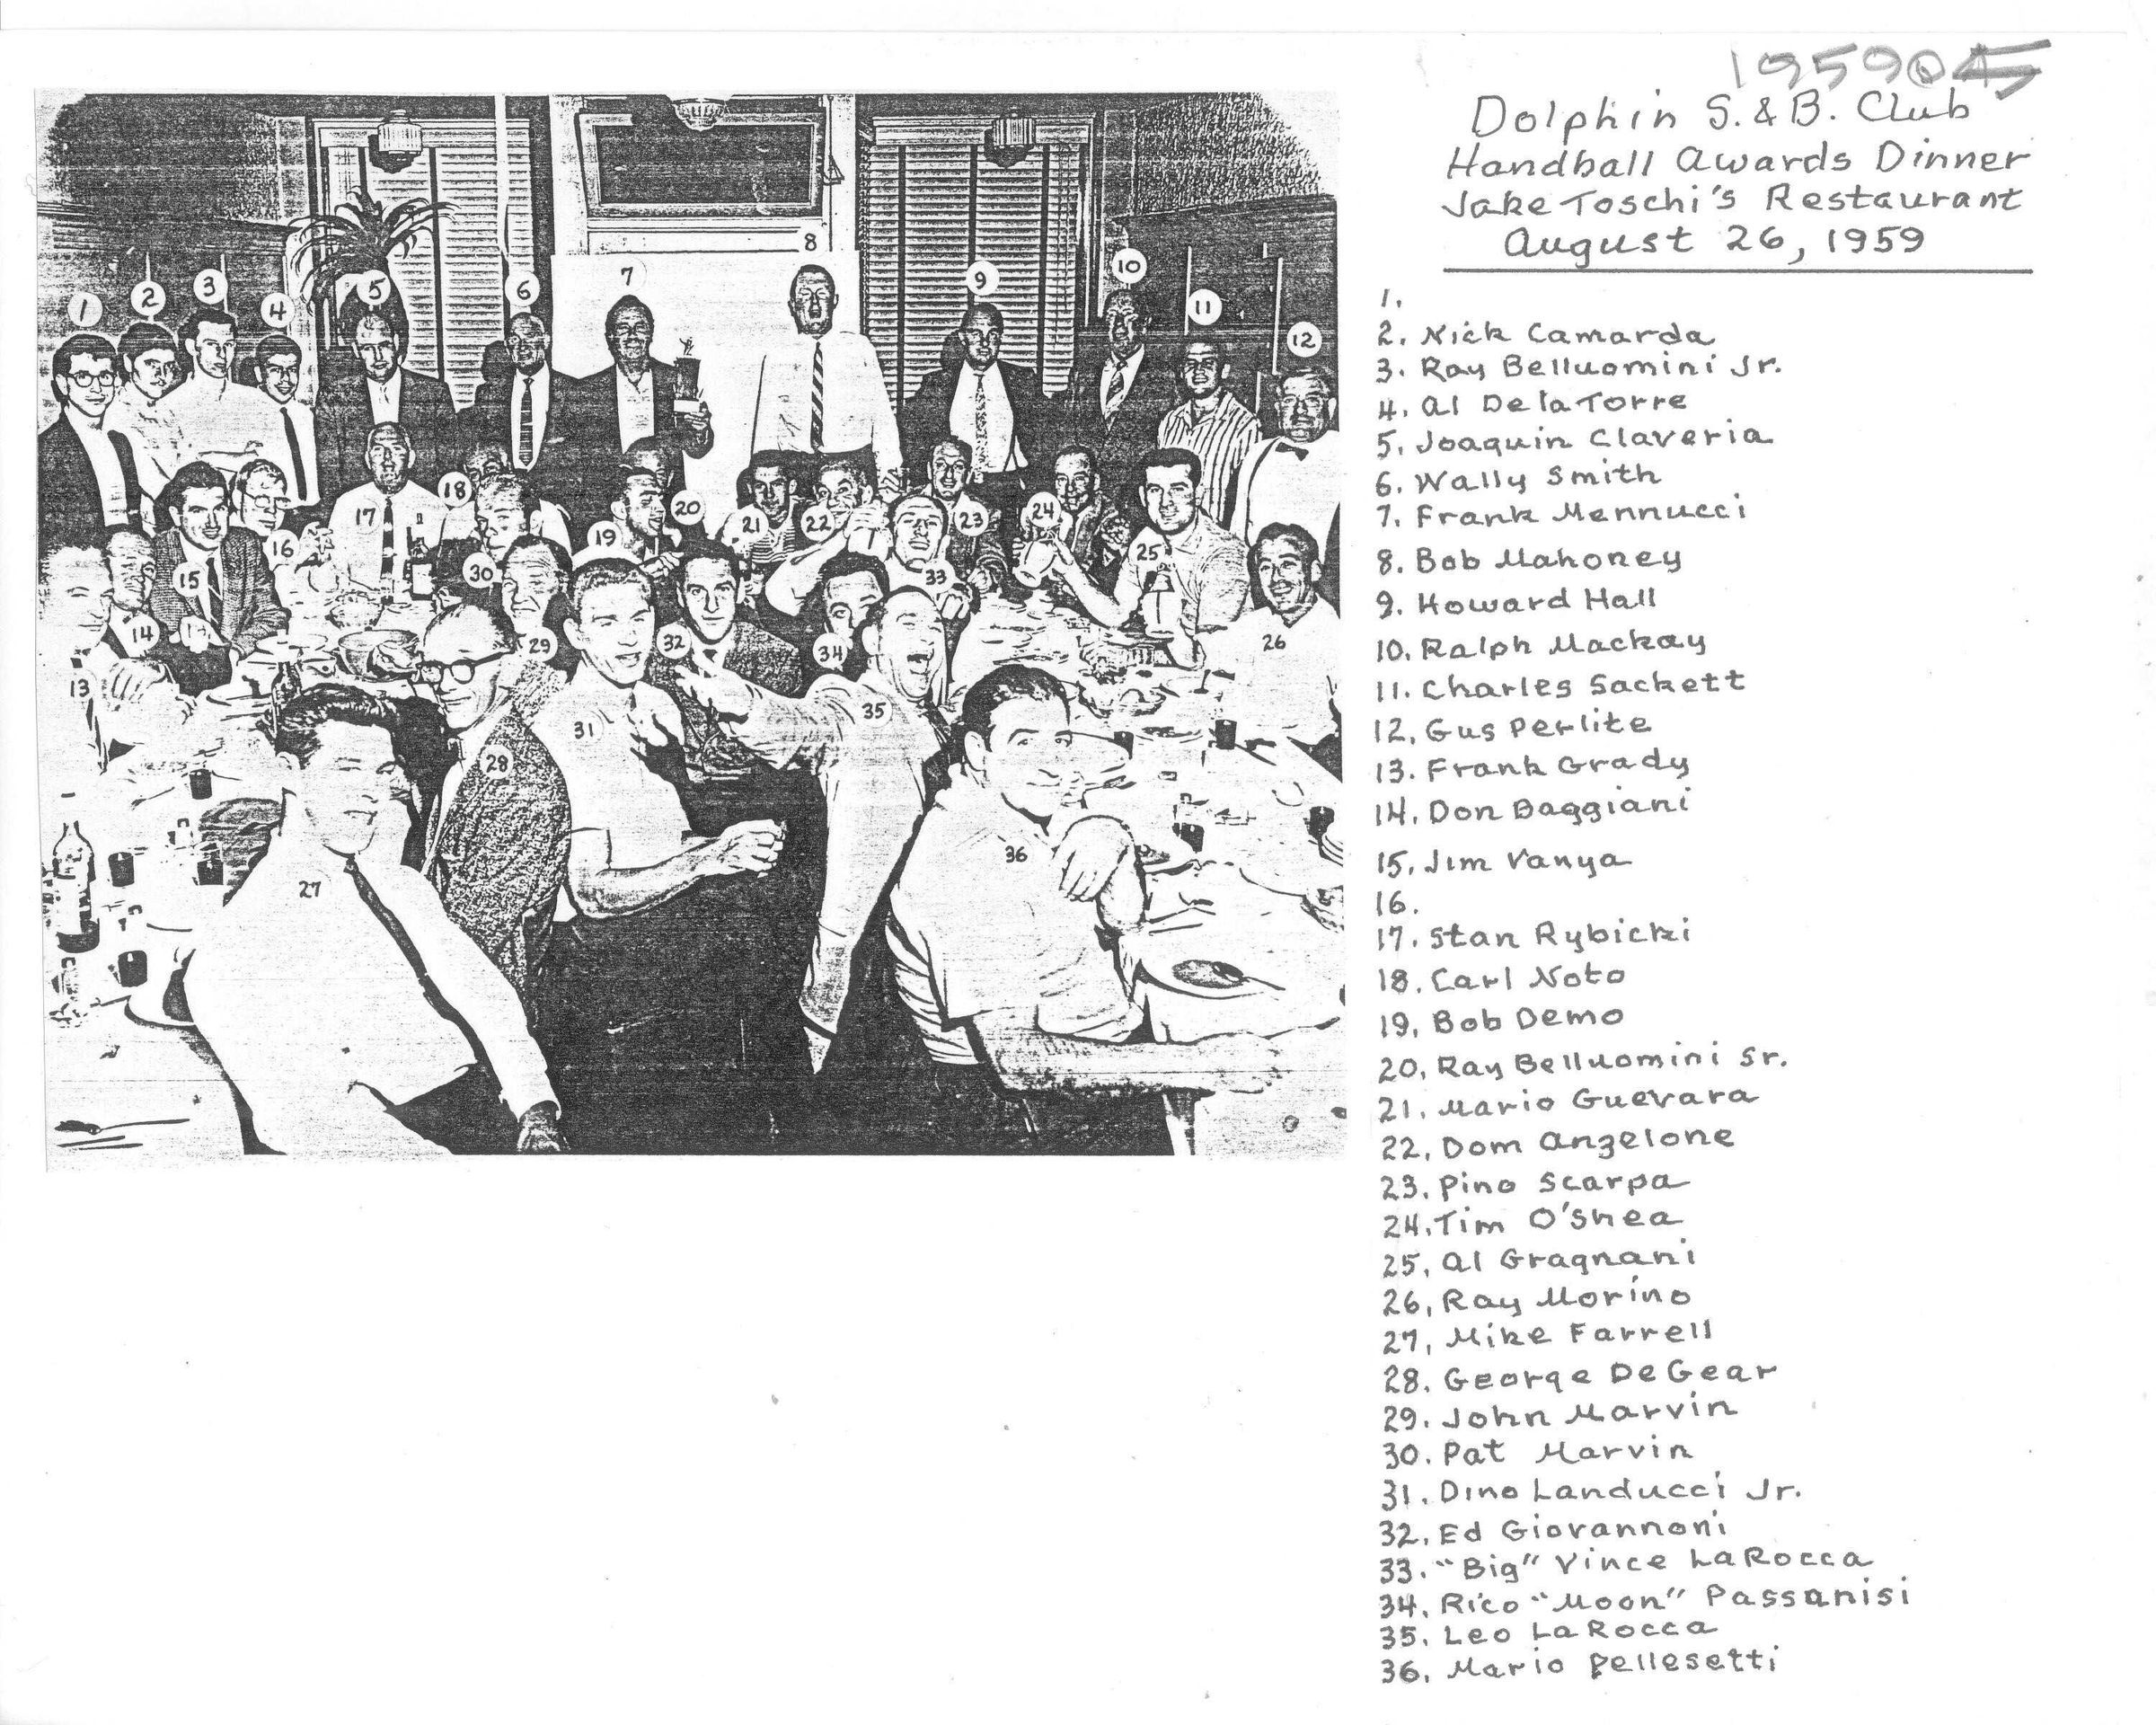 195905
Dolphin S. & B. Club
Handball Awards Dinner
Jake Toschi's Restaurant
August 26, 1959
1.
2. Nick Camarda
3. Ray Belluomini Jr.
4. Al De la Torre
5. Joaquin Claveria
6. Wally Smith
7. Frank Mennucci
8. Bob Mahoney
9. Howard Hall
10. Ralph Mackay
11. Charles Sackett
12. Gus Perlite
13. Frank Grady
14. Don Baggiani
15. Jim Vanya
16.
17. Stan Rybicki
18. Carl Noto
19. Bob Demo
20. Ray Belluomini Sr.
21. Mario Guevara
22. Dom Angelone
23. Pino Scarpa
24. Tim O'Shea
25. Al Gragnani
26. Ray Morino
27. Mike Farrell
28. George DeGear
29. John Marvin
30. Pat Marvin
31. Dino Landucci Jr.
32. Ed Giovannoni
33. "Big" Vince LaRocca
34. Rico "Moon" Passanisi
35. Leo LaRocca
36. Mario Pellesetti
1
2
3
4
5
6
7
8
9
10
11
12
13
14
15
16
17
18
19
20
21
22
23
24
25
26
27
28
29
30
31
32
33
34
35
36